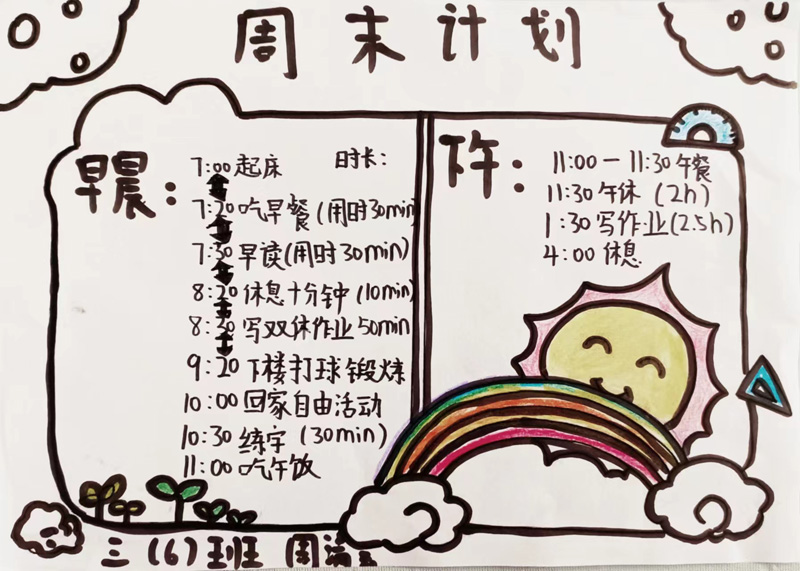 周末计划
早晨：
时长：
7:00起床
7:20吃早餐(用时30min)
7:50早读(用时30min)
8:20休息十分钟(10min)
8:30写双休作业50min
9:20下楼打球锻炼
10:00回家自由活动
10:30练字(30min)
11:00吃午饭
下午：
11:00—11:30午餐
11:30午休(2h)
1:30写作业(2.5h)
4:00休息
三(6)班 周